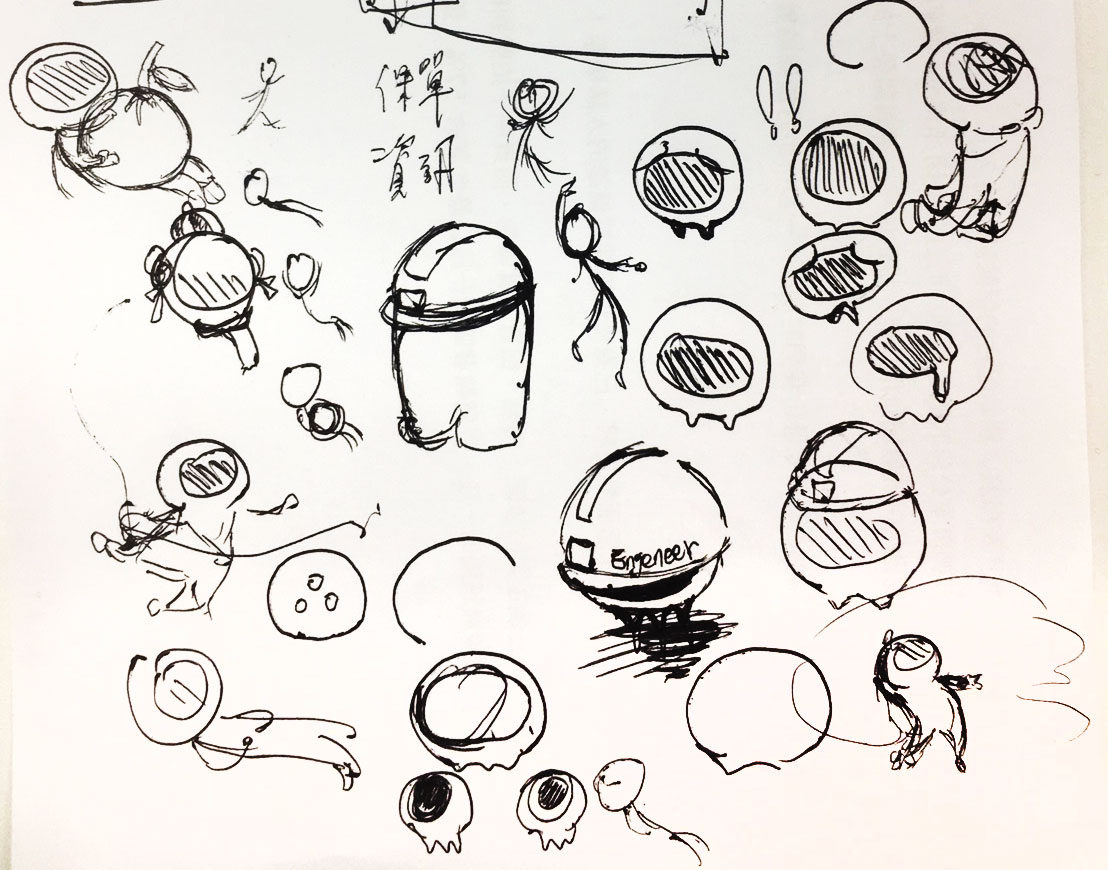 保單
資訊
!!
Engeneer